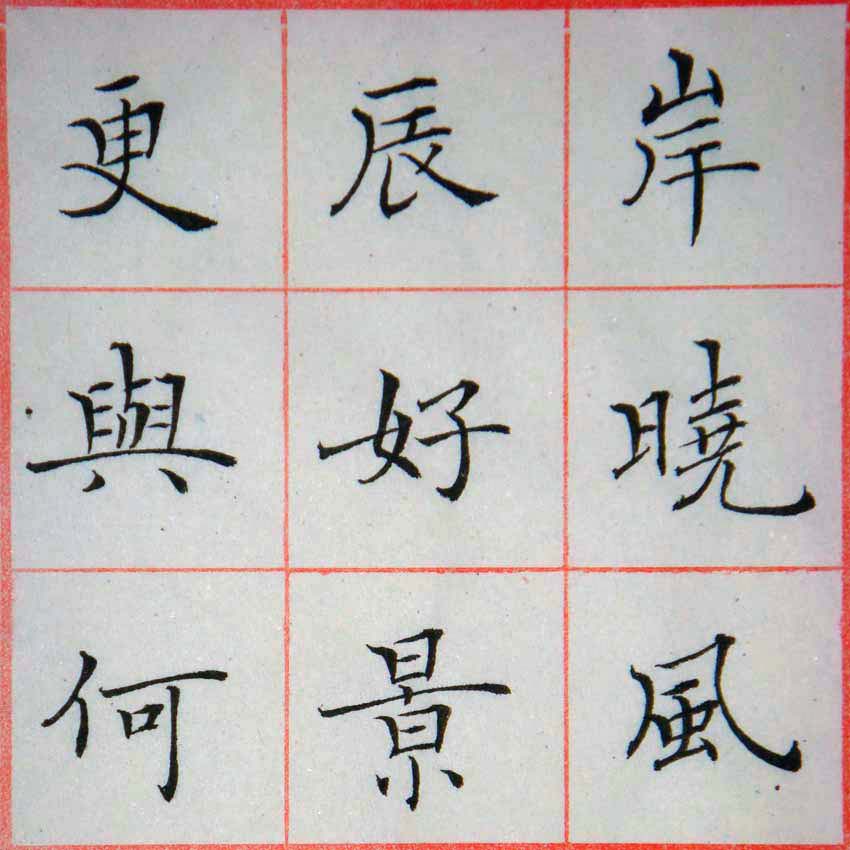 岸曉風
辰好景
更與何